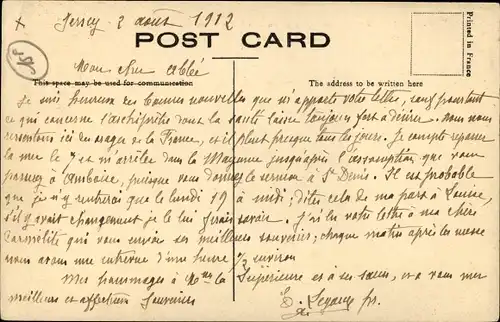 Jersey 2 août 1912
POST CARD
Printed in France
Mon cher Abbé
This space may be used for communication
The address to be written here
Je suis heureux des bonnes nouvelles que m'apporte votre lettre, sauf pourtant
ce qui concerne l'archiprêtre dont la santé laisse toujours fort à désirer. nous nous
ressentons ici des orages de la France, et il pleut presque tous les jours. Je compte repasser
la mer le 7 et m'arrêter dans la Mayenne jusqu'après l'assomption que vous
passerez à Amboise, puisque vous donnez le sermon à St Denis. Il est probable
que je n'y rentrerai que le lundi 19 à midi; dites cela de ma part à Louise,
s'il y avait changement je le lui ferais savoir. J'ai lu votre lettre à ma chère
carmélite qui vous envoie ses meilleurs souvenirs; chaque matin après la messe
nous avons une entrevue d'une heure 1/2 environ
Mes hommages à la Supérieure et à ses sœurs, et à vous mes
meilleurs et affectueux souvenirs